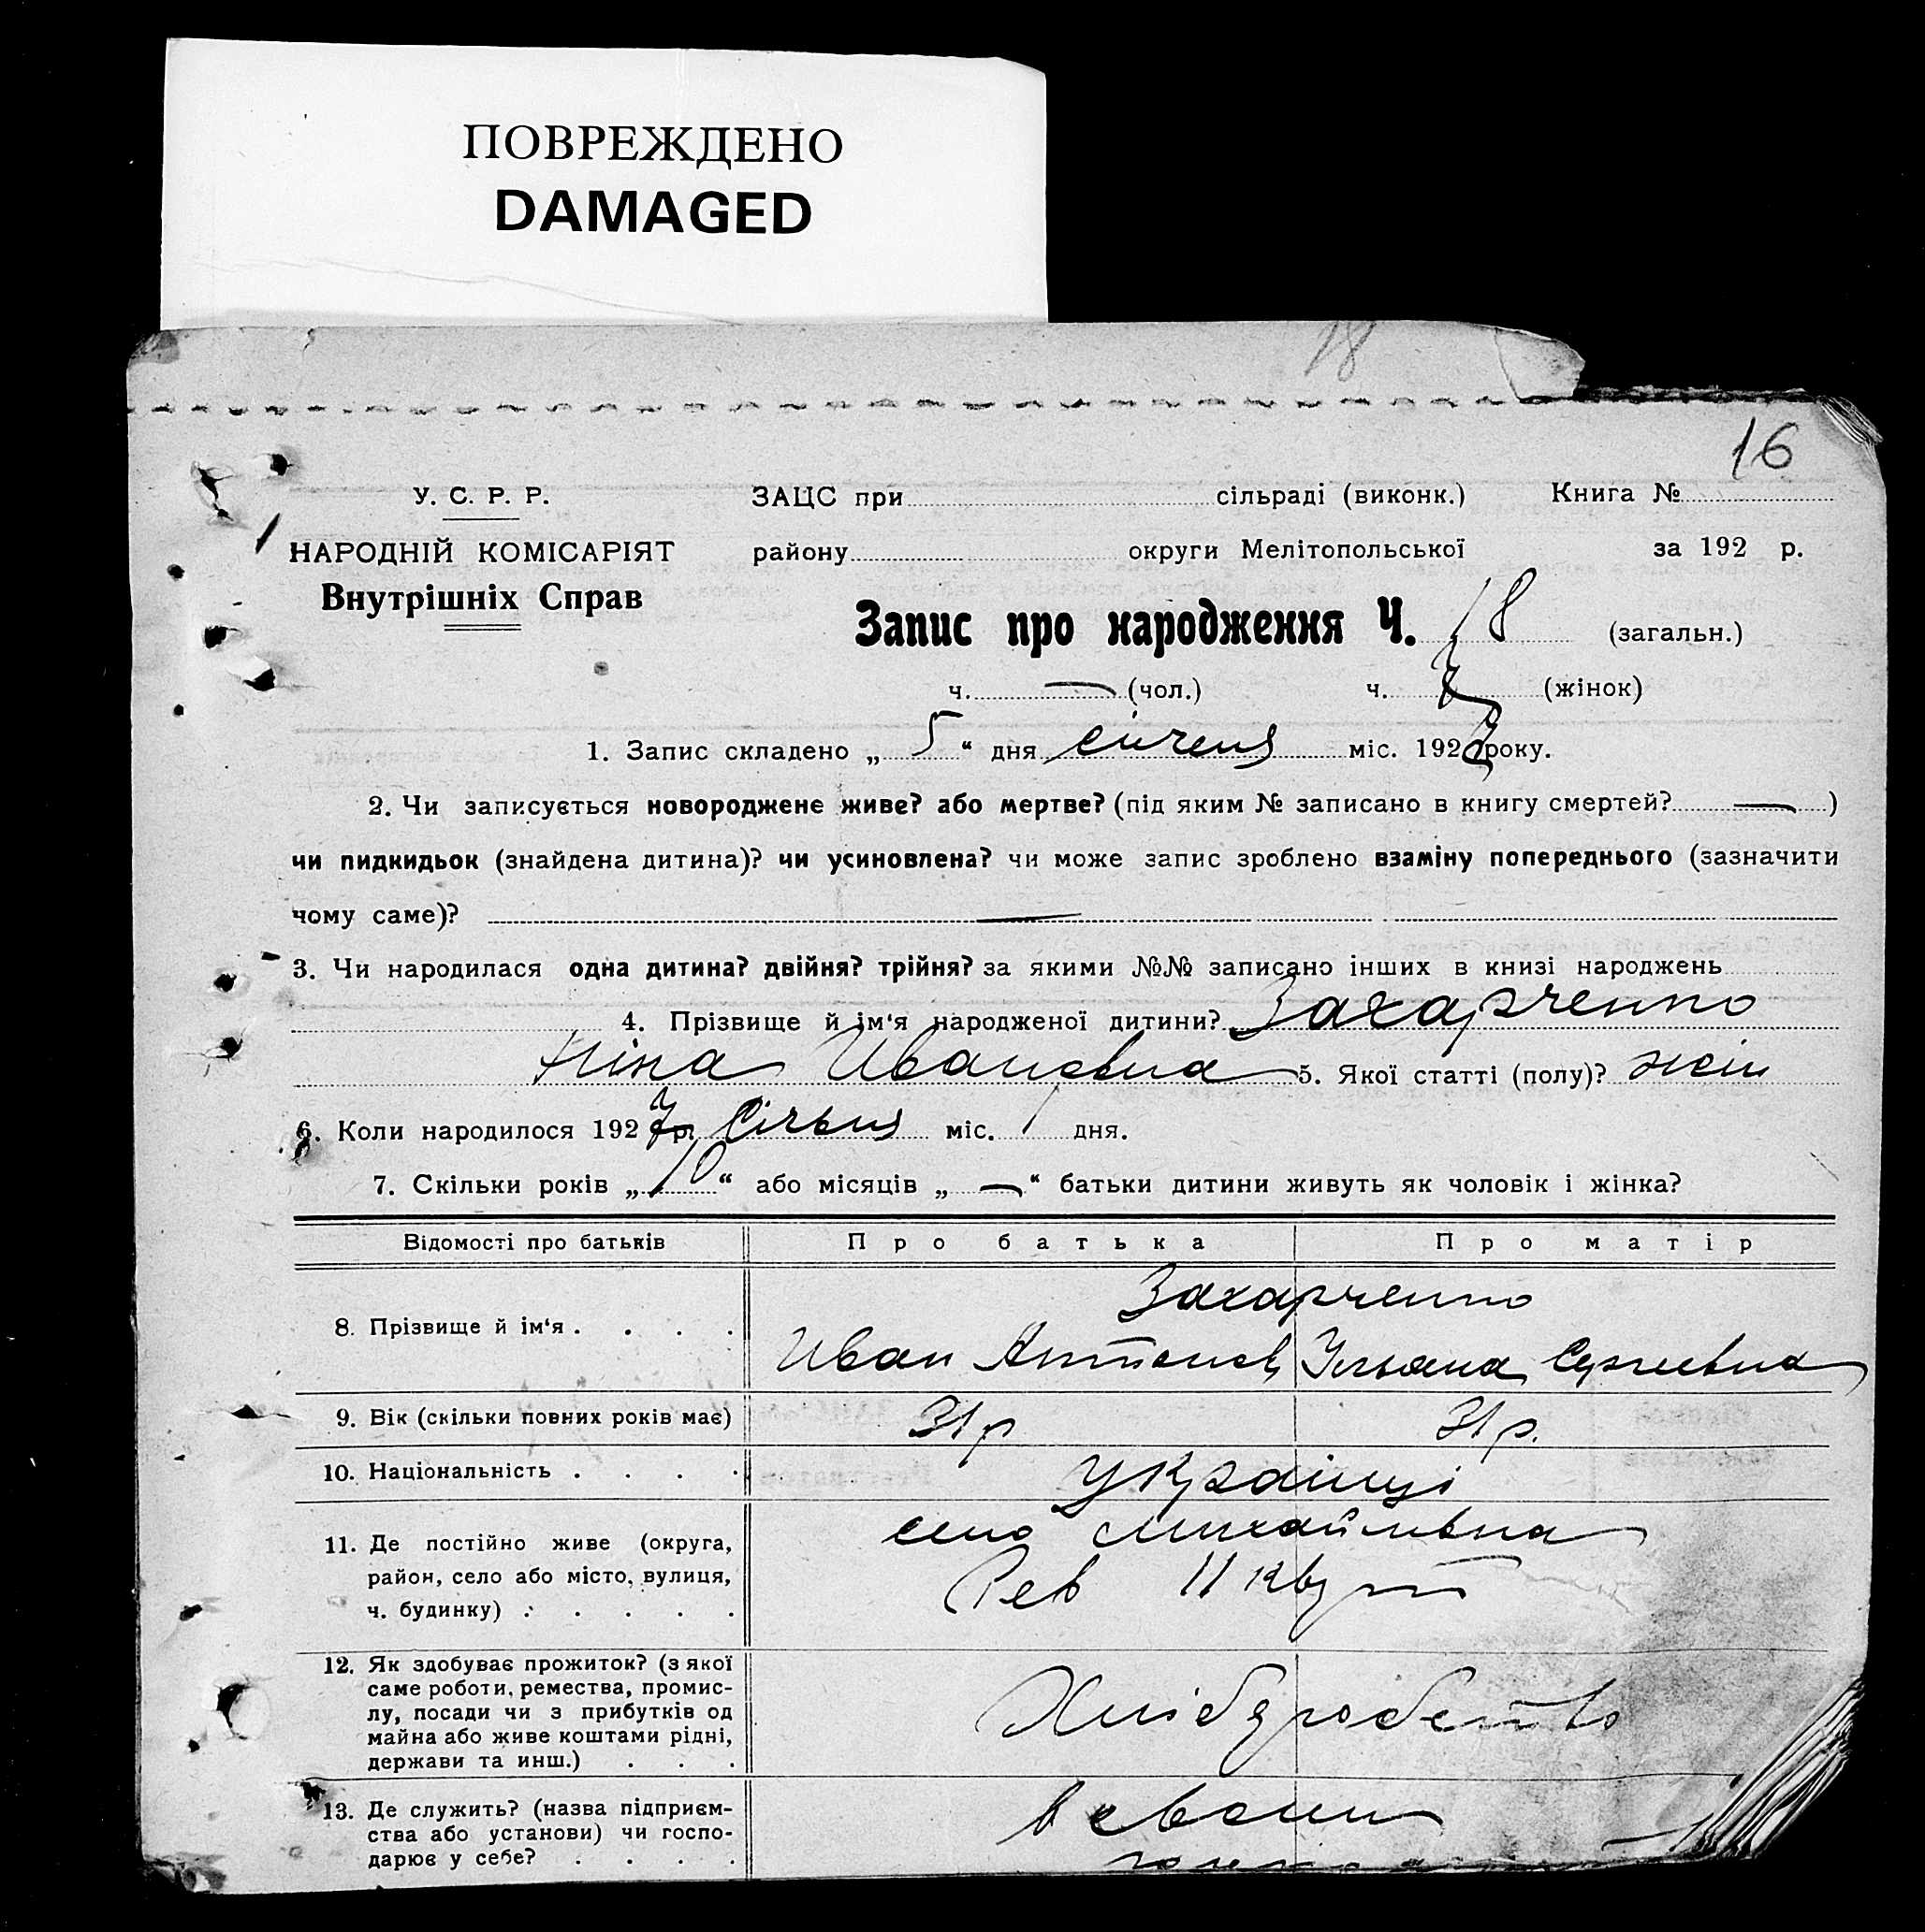 ПОВРЕЖДЕНО
DAMAGED
18
16
У. С. Р. Р.
НАРОДНІЙ КОМІСАРІЯТ
Внутрішніх Справ
ЗАЦС при сільраді (виконк.) Книга №
району округи Мелітопольської за 192 р.
Запис про народження Ч. 18 (загальн.)
ч. — (чол.) ч. 7 (жінок)
1. Запис складено „ 5 “ дня січеня міс. 1927 року.
2. Чи записується новороджене живе? або мертве? (під яким № записано в книгу смертей? — )
чи пидкидьок (знайдена дитина)? чи усиновлена? чи може запис зроблено взаміну попереднього (зазначити
чому саме)? —
3. Чи народилася одна дитина? двійня? трійня? за якими №№ записано інших в книзі народжень
4. Прізвище й ім‘я народженої дитини? Захарченко
Ніна Ивановна 5. Якої статті (полу)? жін
6. Коли народилося 1927 р. Січья міс. 1 дня.
7. Скільки років „ 10 “ або місяців „ — “ батьки дитини живуть як чоловік і жінка?
Відомості про батьків Про батька Про матір
8. Прізвище й ім‘я . . . . Захарченко
Иван Антонов Ульяна Сергеевна
9. Вік (скільки повних років має) 31 р 31 р.
10. Національність . . . . Українці
11. Де постійно живе (округа,
район, село або місто, вулиця,
ч. будинку) . . . . .
село Михайлівка
Рев 11 кварт
12. Як здобуває прожиток? (з якої
саме роботи, ремества, промис-
лу, посади чи з прибутків од
майна або живе коштами рідні,
держави та инш.) . . .
Хліборобство
13. Де служить? (назва підприєм-
ства або установи) чи госпо-
дарює у себе? . . . .
в своим